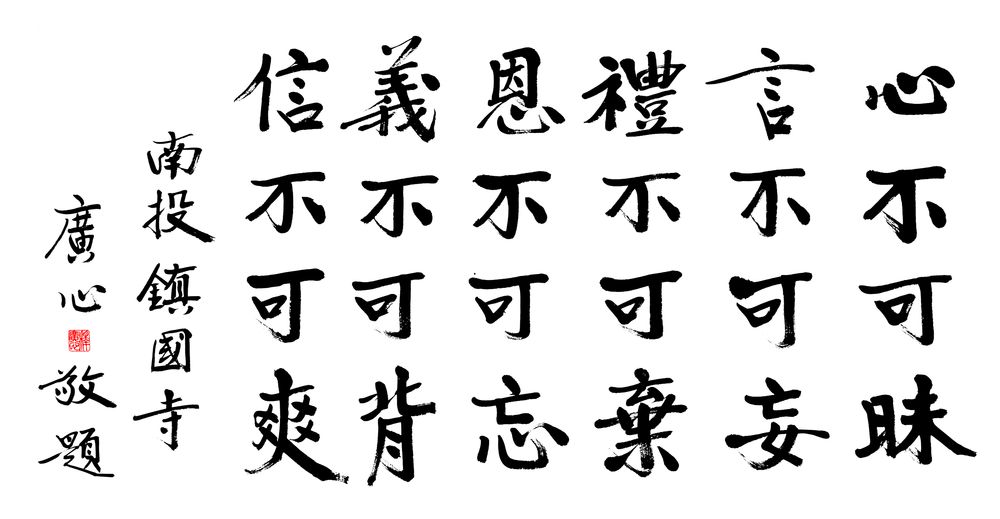 心不可昧
言不可妄
禮不可棄
恩不可忘
義不可背
信不可爽
南投鎮國寺
廣心敬題